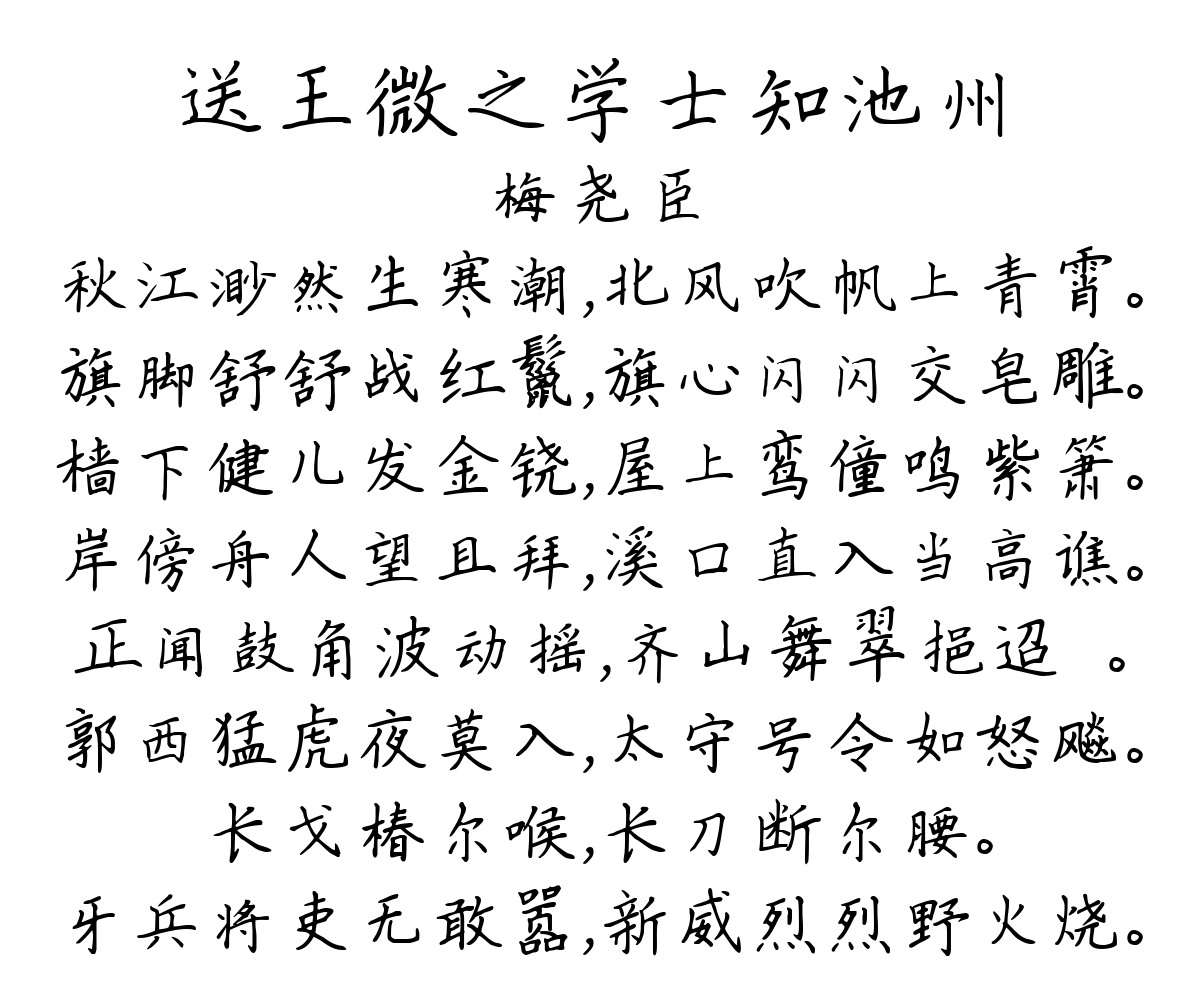 送王微之学士知池州
梅尧臣
秋江渺然生寒潮,北风吹帆上青霄。
旗脚舒舒战红鬣,旗心闪闪交皂雕。
樯下健儿发金铙,屋上鸾僮鸣紫箫。
岸傍舟人望且拜,溪口直入当高谯。
正闻鼓角波动摇,齐山舞翠挹迢 。
郭西猛虎夜莫入,太守号令如怒飚。
长戈椿尔喉,长刀断尔腰。
牙兵将吏无敢嚣,新威烈烈野火烧。